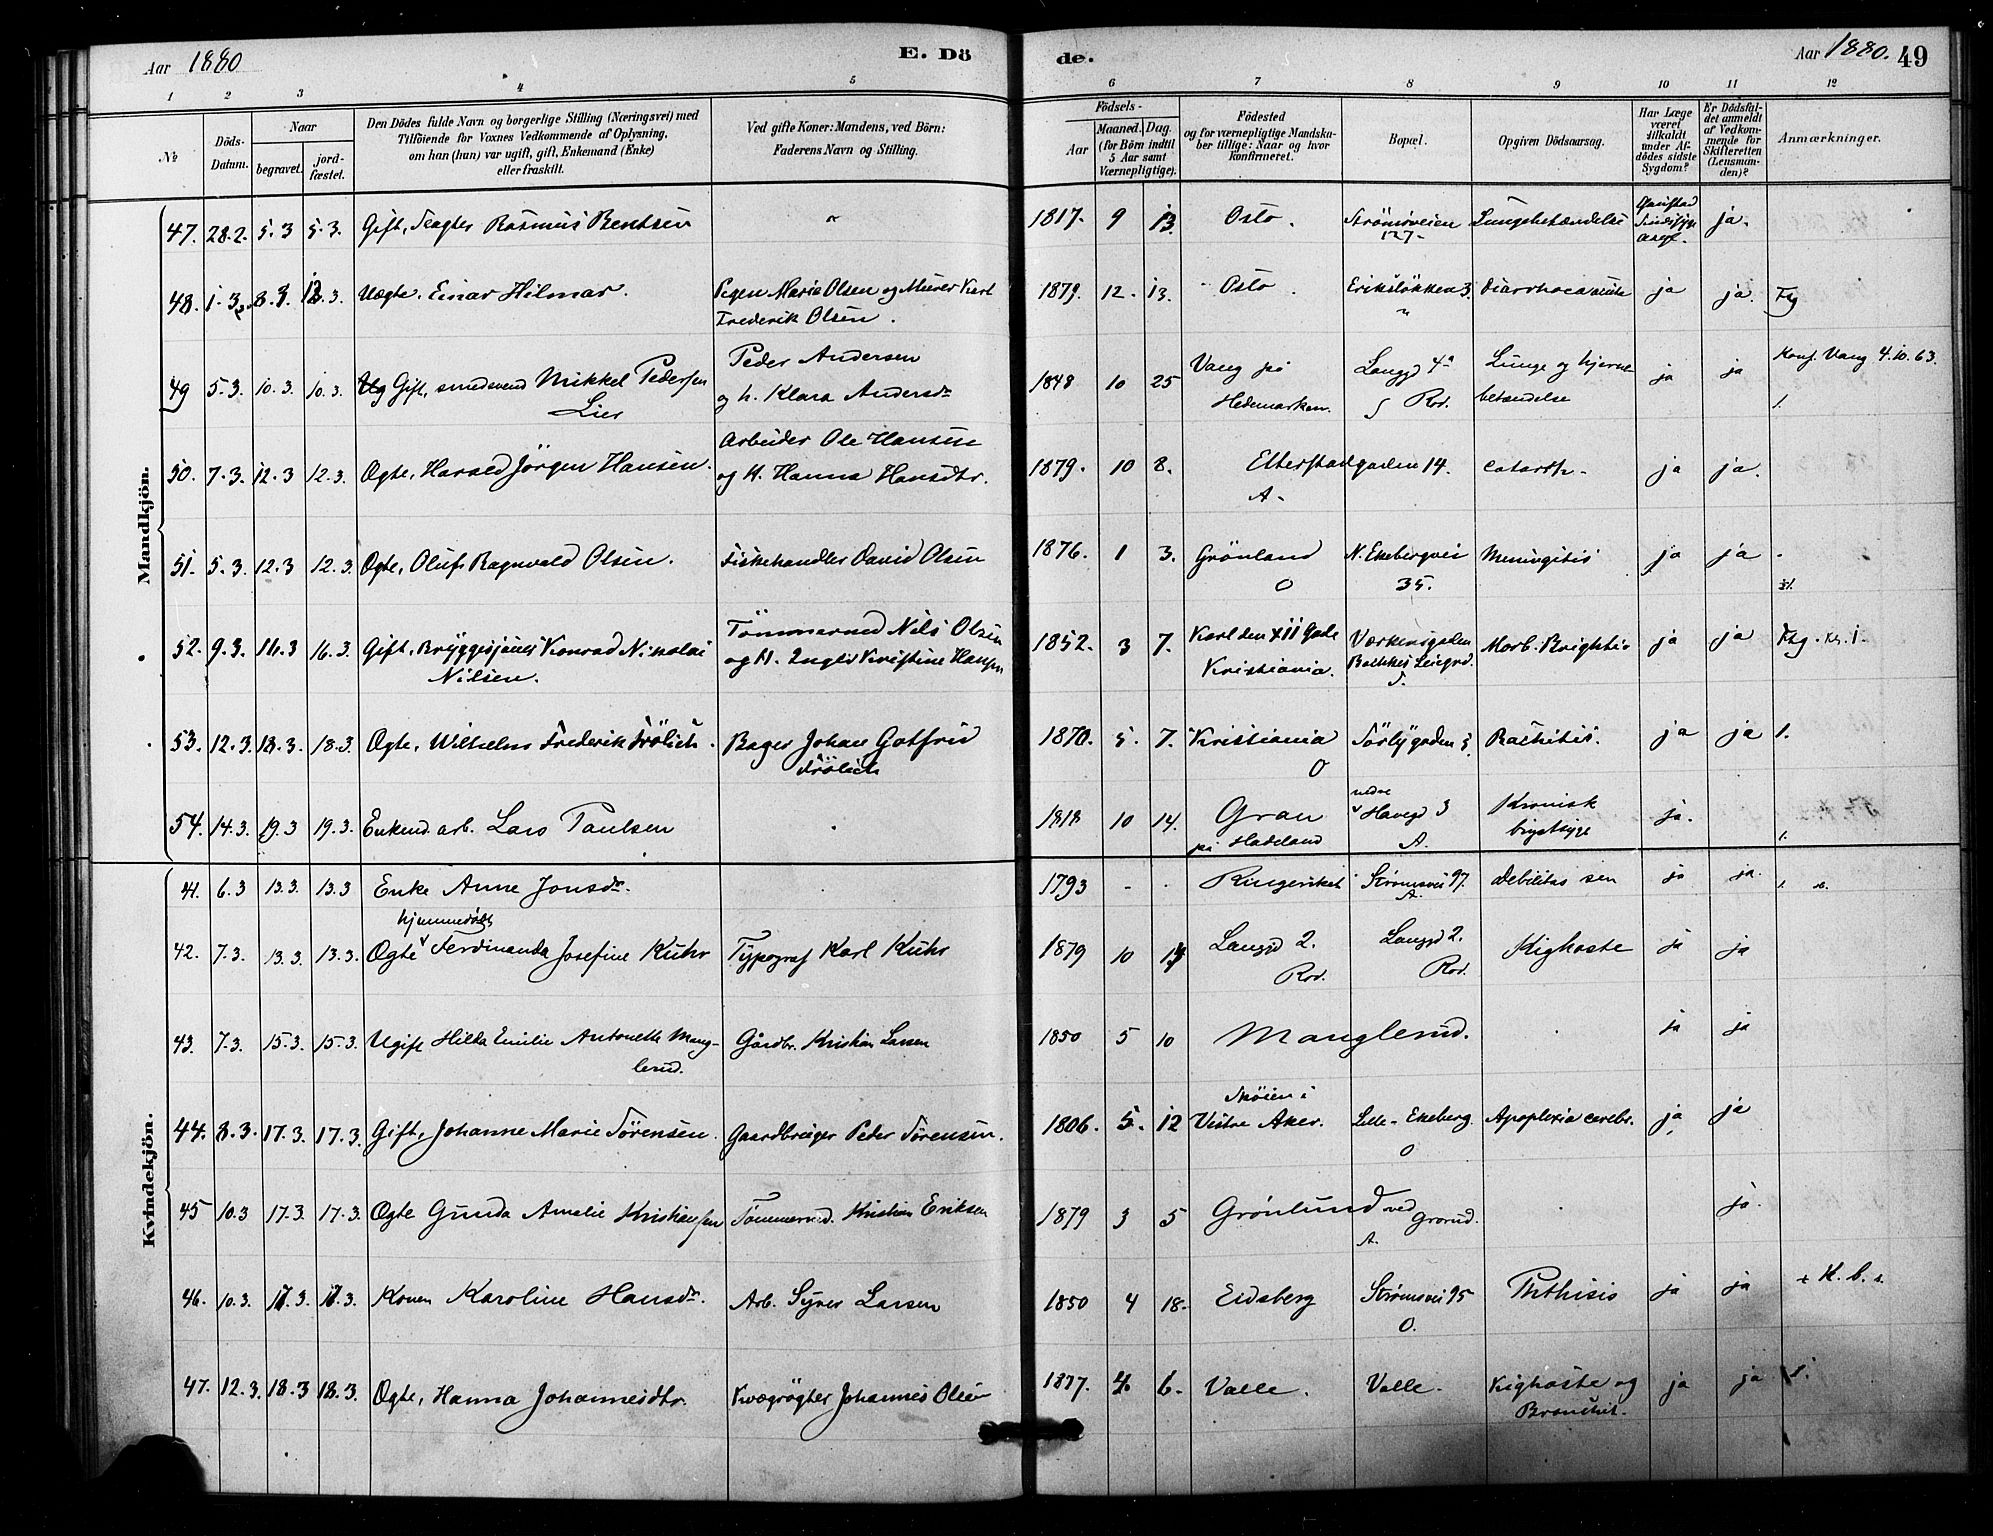 Aar 1880
E. Dö
de.
Aar 1880. 49
1 2 3 4 5 6 7 8 9 10 11 12
№
Döds-Datum.
Naar
begravet.
jord-fæstet.
Den Dödes fulde Navn og borgerlige Stilling (Næringsvei) med
Tilföiende for Voxnes Vedkommende af Oplysning,
om han (hun) var ugift, gift, Enkemand (Enke)
eller fraskilt.
Ved gifte Koner: Mandens, ved Börn:
Faderens Navn og Stilling.
Födsels-
Aar
Maaned. Dag.
(for Börn indtil
5 Aar samt
Værnepligtige).
Födested
og for værnepligtige Mandska-
ber tillige: Naar og hvor
konfirmeret.
Bopæl.
Opgiven Dödsaarsag.
Har Læge
været
tilkaldt
under Af-
dödes sidste
Sygdom?
Er Dödsfal-
det anmeldt
af Vedkom-
mende for
Skifteretten
(Lensman-
den)?
Anmærkninger.
Mandkjön.
47. 28.2. 5.3 5.3. Gift, Rasmus Bentsen " 1817. 9 13. Oslo. Strömsveien Lungebetændelse Gaustad ja.
127-
Sindssyge
asyl.
48. 1.3. 8.3. 12.3. Uægte. Einar Hilmar. Pigen Marie Olsen og Murer Karl 1879. 12. 13. Oslo. Eriksløkken 3. Diarrhoea acuta ja ja. Fsg
Frederik Olsen. "
49 5.3. 10.3. 10.3. Gift, smedsvend Mikkel Pedersen Peder Andersen 1848 10 25 Vang på Langgd 4a Lunge og hjerne ja ja Konf. Vang 4.10.63.
Lier og h. Klara Andersdr Hedemarken. Rod. betændelse 1.
50. 7.3. 12.3 12.3. Ægte, Harald Jörgen Hansen. Arbeider Ole Hansen 1879. 10 8. Etterstadgaden 14. catarrh- ja ja.
og H. Hanna Hansdtr. A-
51. 5.3. 12.3 12.3. Ægte, Oluf Ragnvald Olsen. Fiskehandler David Olsen 1876. 1 3. Grönland N. Ekebergvei Meningitis ja ja
O 35.
52. 9.3. 16.3 16.3. Gift, Bryggesjauer Konrad Nikolai Tömmermd Nils Olsen 1852. 3 7. Karl den XII Gade Værkensgaden Morb. Brightii ja ja Fsg.
Nilsen. og H. Kristine Hansen Kristiania.
53. 12.3. 18.3. 18.3. Ægte, Wilhelm Frederik Frölich. Bager Johan Gotfrid 1870. 5. 7. Kristiania Rachitis. ja ja 1.
Frölich O
54. 14.3. 19.3 19.3. Enkemd. arb. Lars Paulsen 1818 10 14. Gran nedre Havegd 3 Kronisk ja.
på Hadeland A. brystsyge 1.
Kvindekjön.
41. 6.3 13.3. 13.3 Enke Anne Jonsdr. 1793 - - Ringeriket Strømsvei 97. debilitas sen ja ja.
A.
hjemmedöbt
42. 7.3. 13.3. 13.3. Ægte Ferdinanda Josefine Kuhr Typograf Karl Kuhr 1879 10 Langgd 2. Langgd 2. Kighoste ja ja
Rod. Rod.
43. 7.3. 15.3. 15.3. Ugift Hilda Emilie Antonette Mang- Gårdbr. Kristian Larsen 1850 5 10 Manglerud. ja ja
lerud.
44. 8.3. 17.3. 17.3. Gift, Johanne Marie Sörensen. Gaardbruger Peder Sörensen. 1806. 5. 12 Skøien i Vestre Aker. Lille-Ekeberg. Apoplexia cerebr. ja ja
O
45 10.3 17.3. 17.3. Ægte Gunda Amelie Kristiansen Tömmermd. Kristian Eriksen 1879 3 5 Grønlund ved Grorud. ja.
A.
46. 10.3. 17.3. 17.3. Konen Karoline Hansdr. Arb. Syver Larsen 1850 4 18. Eidsberg Strømsvei 95 Phthisis ja ja + K. b. s.
O.
47. 12.3. 18.3 18.3. Ægte, Hanna Johannesdtr. Kvægrögter Johannes Olsen 1877. 4. 6. Valle. Valle. Kighoste og ja ja 1.
Bronchit.